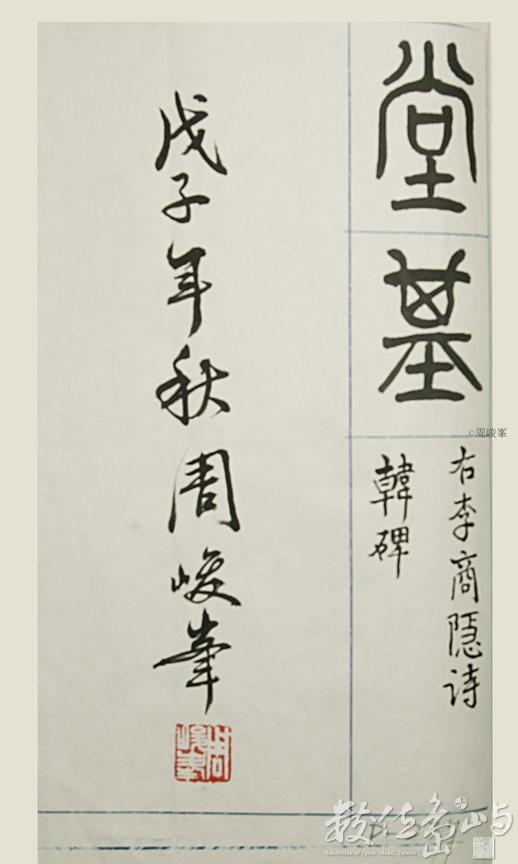 堂基
右李商隱诗
韓碑
戊子年秋周峻峯
周峻峯
©周峻峯
數位島嶼